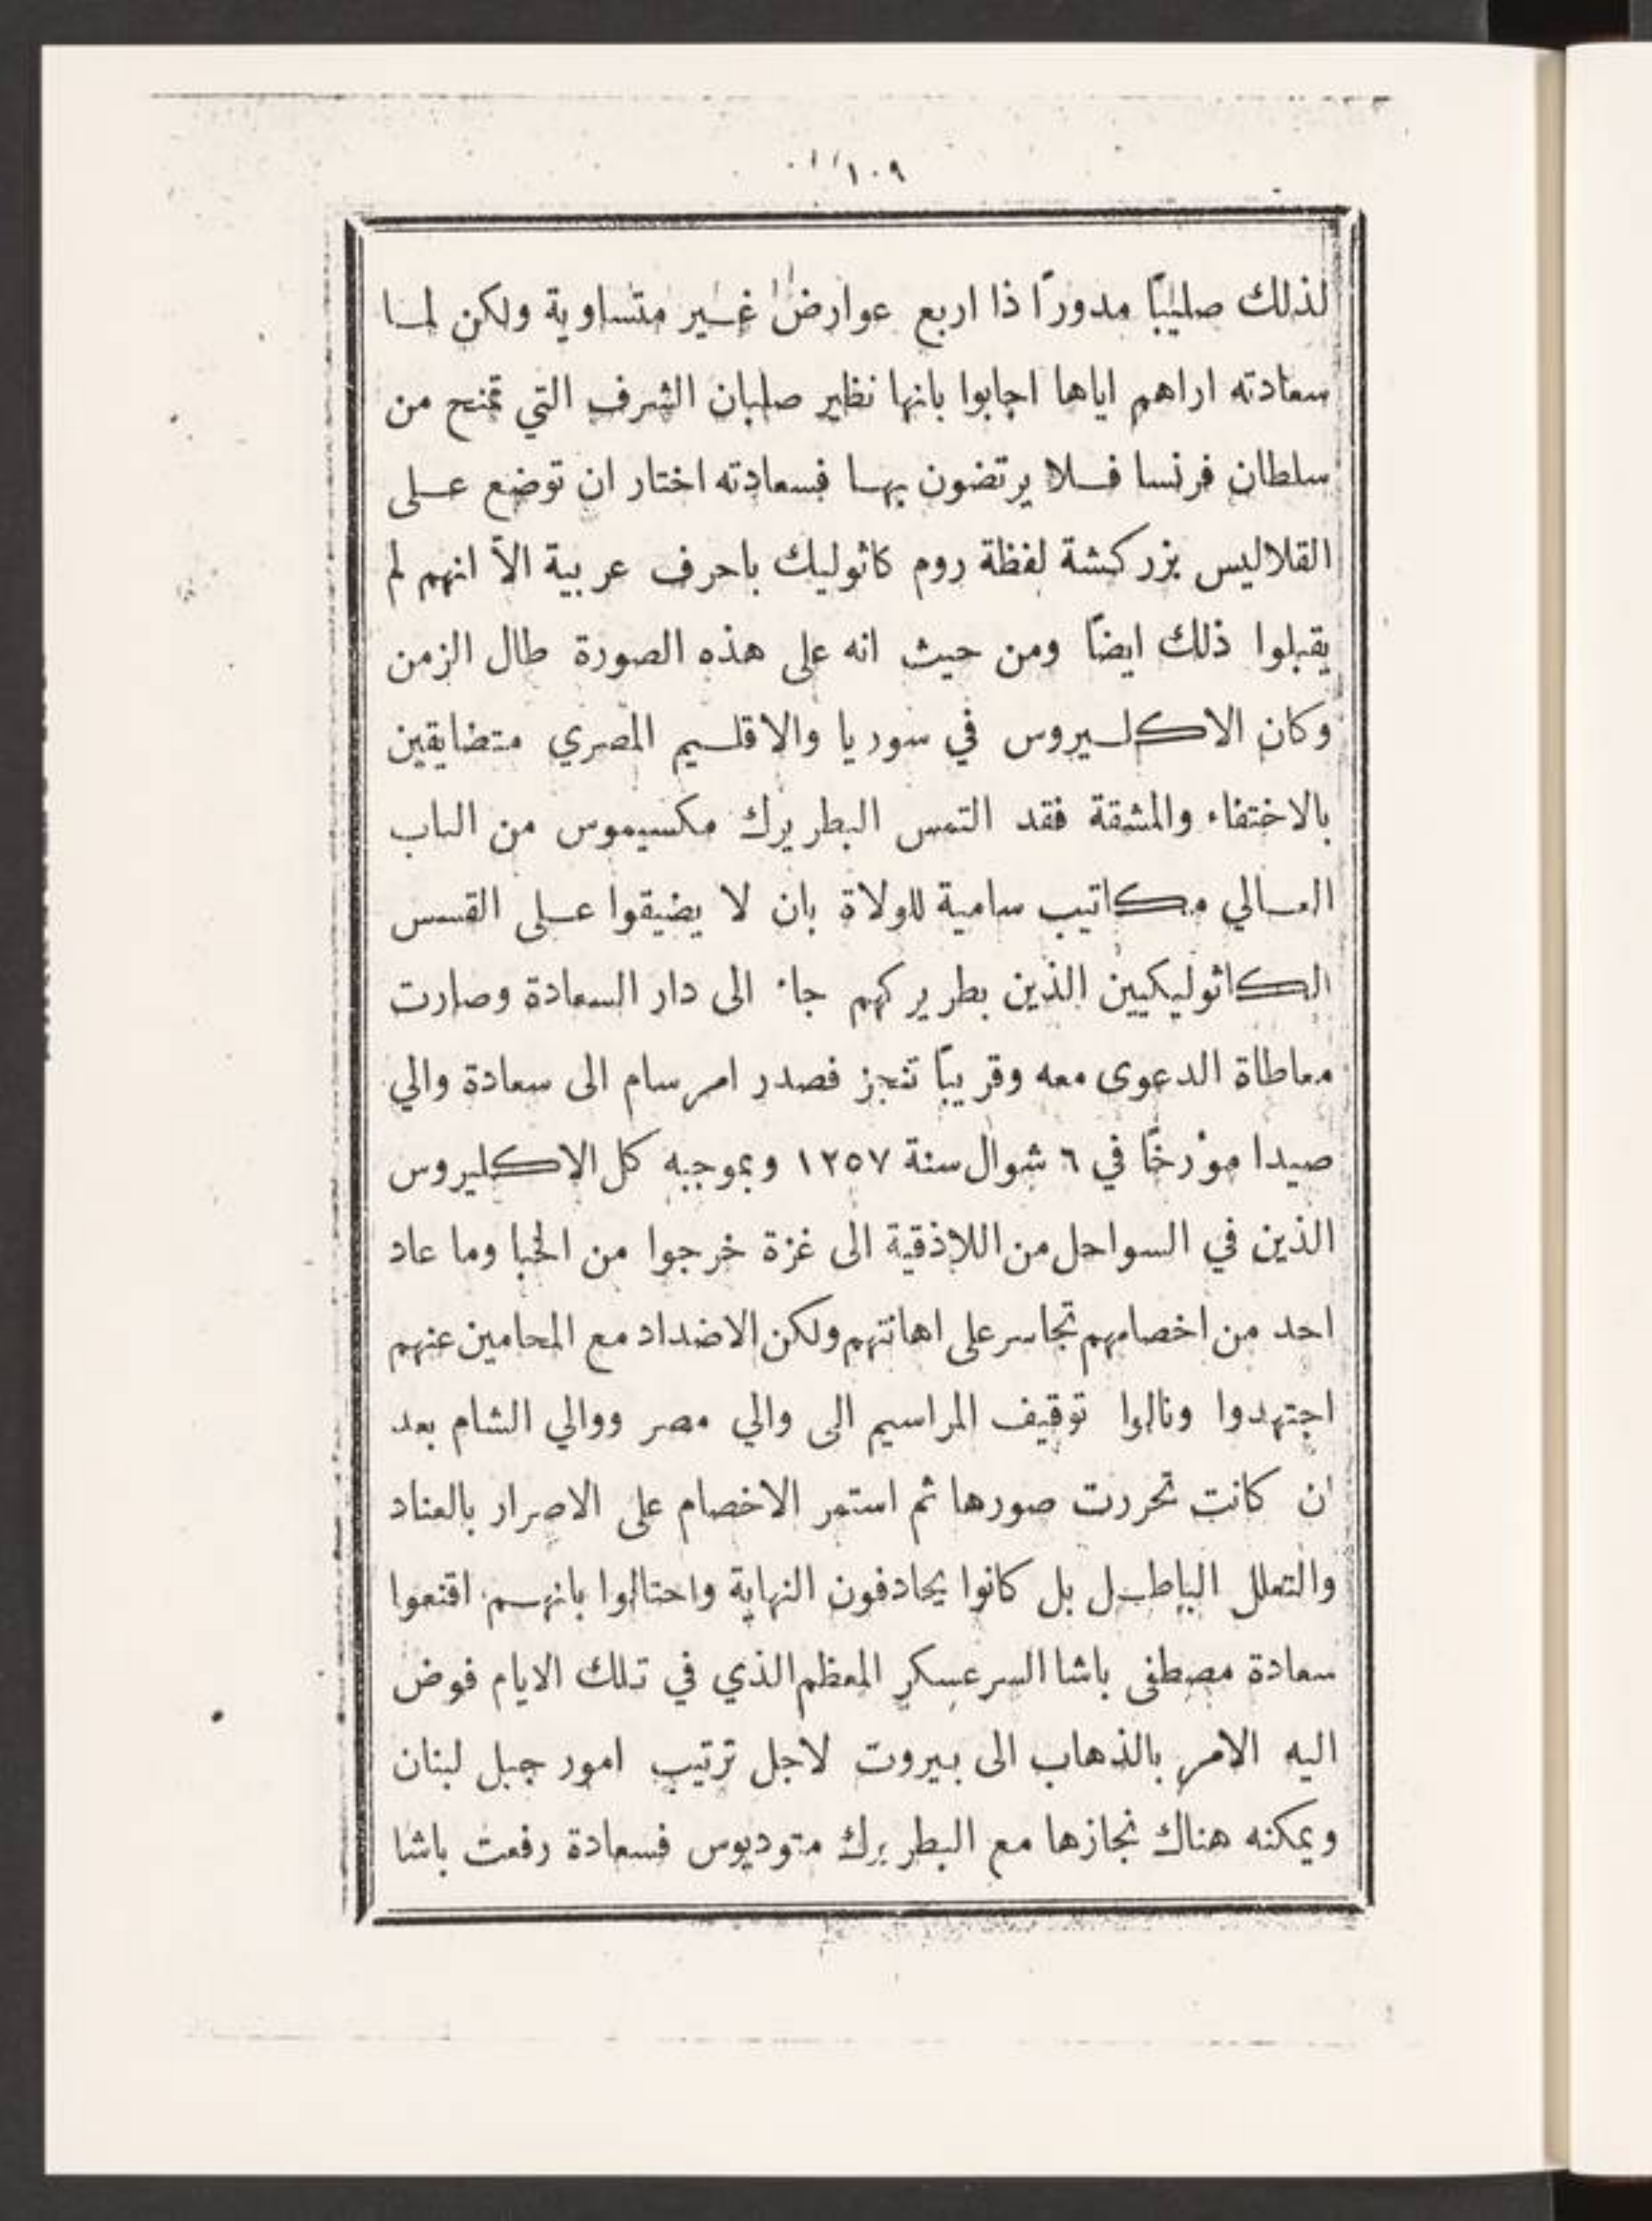 ١٠٩
لذلك صليبًا مدورًا ذا اربع عوارض غير متساوية ولكن لما
سعادته اراهم اياها اجابوا بانها نظير صلبان الشرف التي تمنح من
سلطان فرنسا فلا يرتضون بها فسعادته اختار ان توضع على
القلاليس بزركشة لفظة روم كاثوليك باحرف عربية الاّ انهم لم
يقبلوا ذلك ايضًا ومن حيث انه على هذه الصورة طال الزمن
وكان الاكليروس في سوريا والاقليم المصري متضايقين
بالاختفاء والمشقة فقد التمس البطريرك مكسيموس من الباب
العالي مكاتيب سامية للولاة بان لا يضيقوا على القسس
الكاثوليكيين الذين بطريركهم جاء الى دار السعادة وصارت
معاطاة الدعوى معه وقريبًا تنجز فصدر امر سام الى سعادة والي
صيدا مؤرخًا في ٦ شوال سنة ١٢٥٧ وبموجبه كل الاكليروس
الذين في السواحل من اللاذقية الى غزة خرجوا من الخبا وما عاد
احد من اخصامهم تجاسر على اهانتهم ولكن الاضداد مع المحامين عنهم
اجتهدوا ونالوا توقيف المراسيم الى والي مصر ووالي الشام بعد
ان كانت تحررت صورها ثم استمر الاخصام على الاصرار بالعناد
والتعلل الباطل بل كانوا يحادفون النهاية واحتالوا بانهم اقنعوا
سعادة مصطفى باشا السرعسكر المعظم الذي في تلك الايام فوض
اليه الامر بالذهاب الى بيروت لاجل ترتيب امور جبل لبنان
ويمكنه هناك نجازها مع البطريرك متوديوس فسعادة رفعت باشا